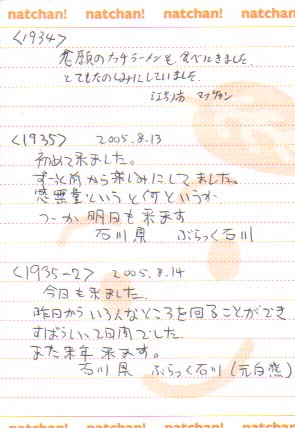 natchan! natchan! natchan! natchan!
<1934>
念願のナッチラーメンを、食べにきました。
とてもたのしみにしていました。
マップチャン
<1935> 2005.8.13
初めて来ました。
ずーっと前から楽しみにしてました。
感無量というか何というか
つーか明日も来ます
石川県 ぶらっく石川
<1935-2> 2005.8.14
今日も来ました。
昨日からいろんなところを回ることができ
すばらしい2日間でした。
また来年来ます。
石川県 ぶらっく石川(元白熊)
natchan! natchan! natchan! natchan!